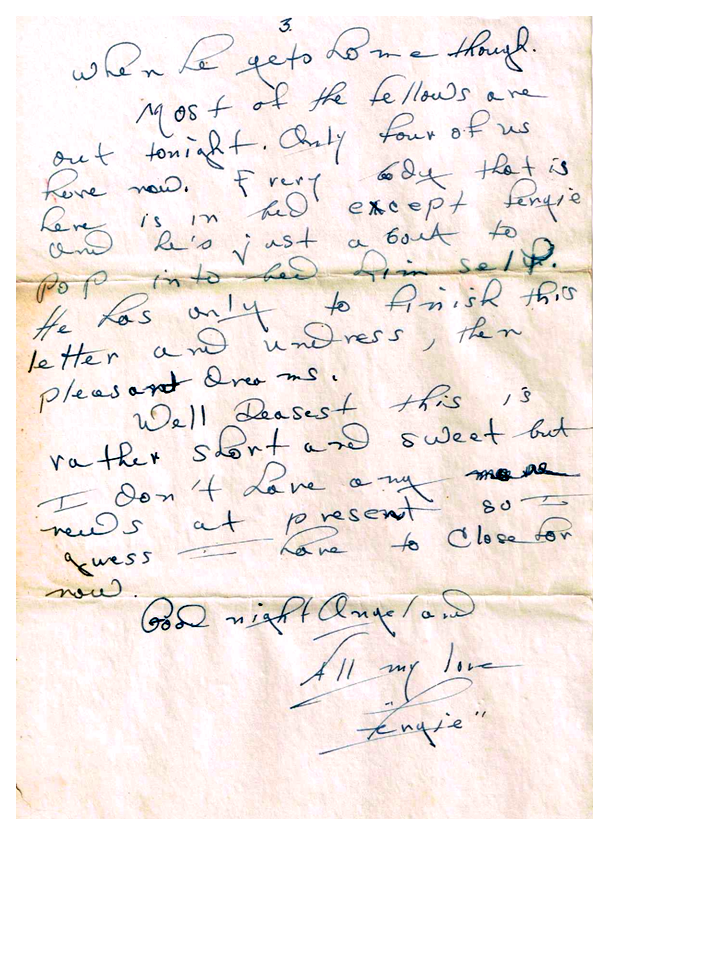 3.
when he gets home though.
Most of the fellows are
out tonight. Only four of us
here now. Every body that is
here is in bed except Fergie
and he's just about to
pop into bed him self.
He has only to finish this
letter and undress, then
pleasant dreams.
Well Deasest this is
rather short and sweet but
I don't have any more
news at present so I
guess I have to close for
now.
Good night Angel and
All my love
"Fergie"